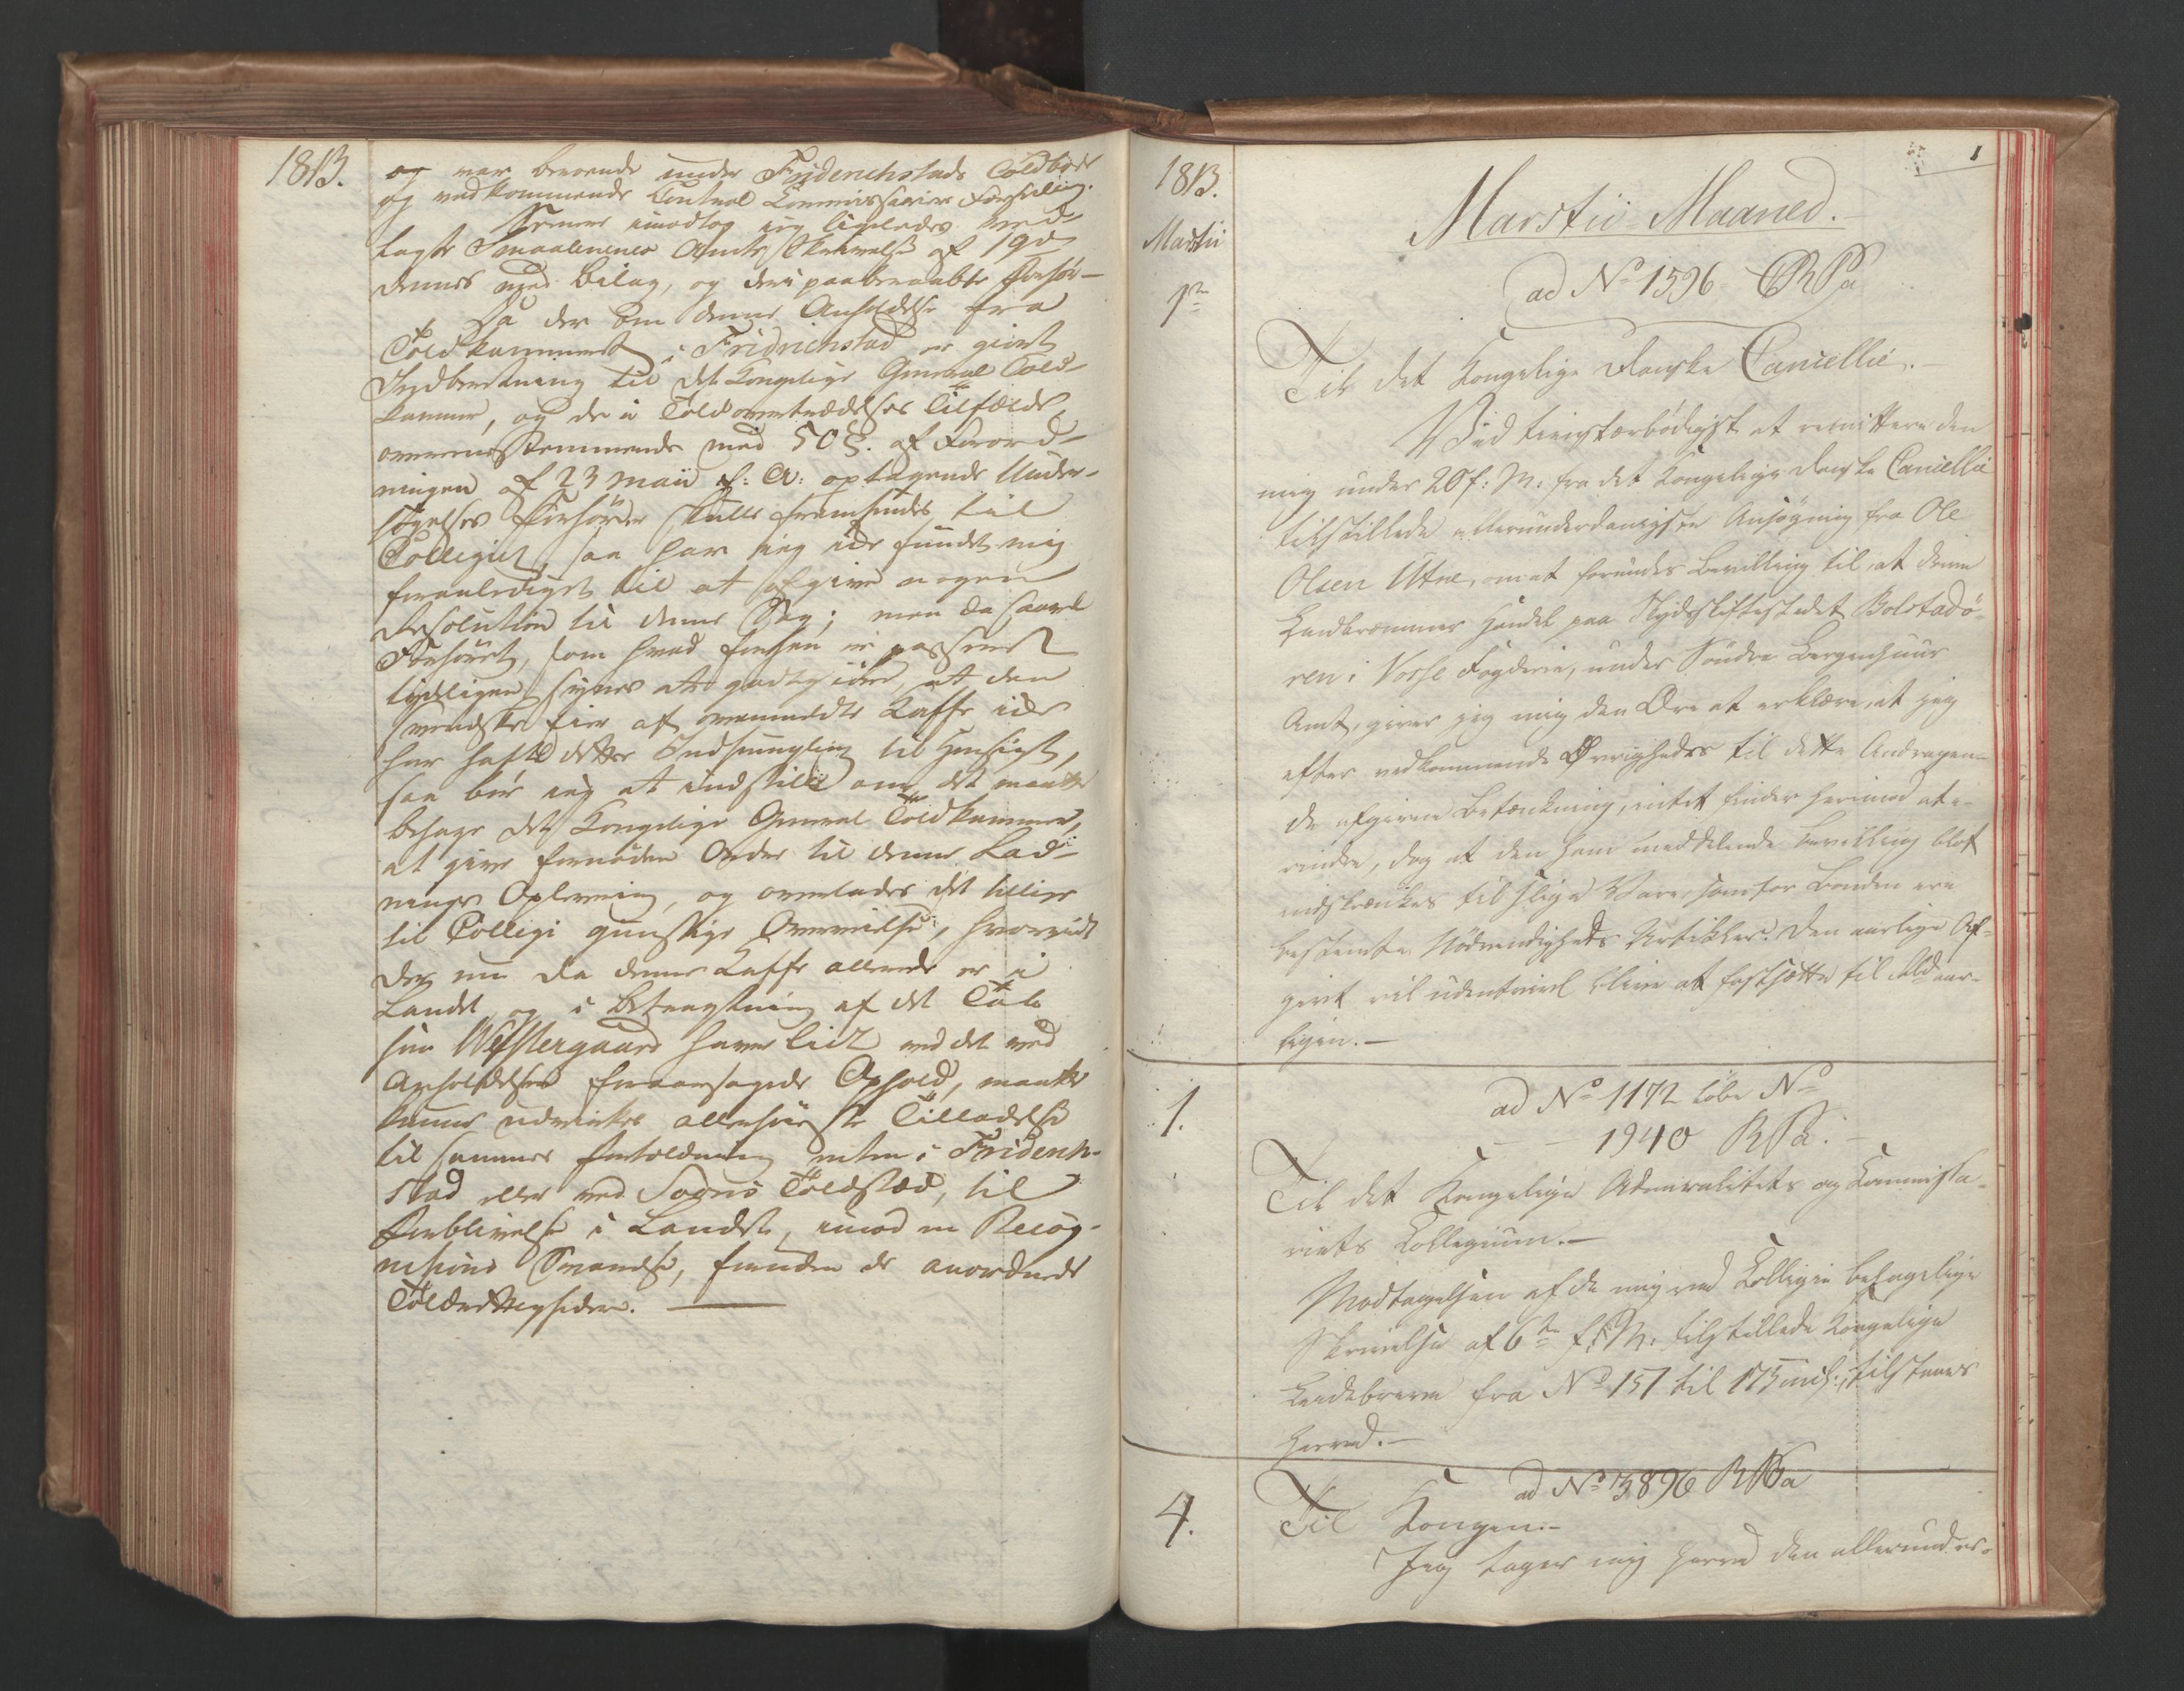 1813.
og var beroende under Friderichstads Toldbods
og vedkommende Control Commissairiers Forseiling.
Senere imodtog jeg ligeledes med
lagte Smaalenenes Amts Skrivelse af 19de
dennes med Bilag, og deri paaberaabte Forhør.
Da der om denne Anholdelse fra
Toldkammeret i Fridrichstad er givet
Indberetning til det Kongelige General Told-
kammer, og de i Toldovertrædelses Tilfælde
overeensstemmende med 50 §. af Forord-
ningen af 23 Maii f: A: optagende Under-
søgelses Forhører skulle fremsendes til
Collegiet, saa har jeg ikke fundet mig
foranlediget til at afgive nogen
Resolution til denne Sag; men da saavel
Forhøret, som hvad forhen er passeret
tydeligen synes at godtgiøre, at den
svendske Eier af ovenmeldte Kaffe ikke
har havt dettes Indsmugling til Hensigt,
saa bør jeg at indstille om det maatte
behage det Kongelige General Toldkammer,
at give fornøden Ordre til denne Lad-
nings Opleverning, og overlades det tillige
til Collegii gunstige Overveielse, hvorvidt
der nu da denne Kaffe allerede er i
Landet og i Betragtning af det Tab
som Westergaard haver lidt ved det ved
Anholdelsen foraarsagede Ophold, maatte
kunne udvirkes allerhøieste Tilladelse
til sammes Fortoldning enten i Friderich-
stad eller ved Sognis Toldsted, til
Forblivelse i Landet, imod en Recog-
nitions Svarelse, foruden de anordnede
Toldrettigheder.
1
1813.
Martii
1te
Martii Maaned.
ad No 1596 RPa
Til det Kongelige Danske Cancellie.
Ved tienstærbødigst at remittere den
mig under 20 f: M: fra det Kongelige Danske Cancellie
tilstillede allerunderdanigste Ansøgning fra Ole
Olsen Utne, om at forundes Bevilling til, at drive
Landkræmmer Handel paa Skydsskiftestedet Bolstadø-
ren i Vosse Fogderie, under Søndre Bergenhuus
Amt, giver jeg mig den Ære at erklære, at jeg
efter vedkommende Øvrigheders til dette Andragen-
de afgivne Betænkning, intet finder herimod at e-
rindre, dog at den ham meddelende Bevilling blot
indskrænkes til slige Vare, som for Bonden ere
bestemte Nødvendigheds Artikler. Den aarlige Af-
givt vil udentvivl blive at fastsætte til 4 Rd aar-
ligen.
1.
ad No 1172 Løbe No
1940 RPa.
Til det Kongelige Admiralitets og Commissa-
riats Collegium.
Modtagelsen af de mig med Collegii behagelige
Skrivelse af 6te f: M: tilstillede Kongelige
Leidebreve fra No 151 til 175 incl:, tilstaaes
herved.
4.
ad No 3896 RPa
Til Kongen.
Jeg tager mig herved den allerunder-